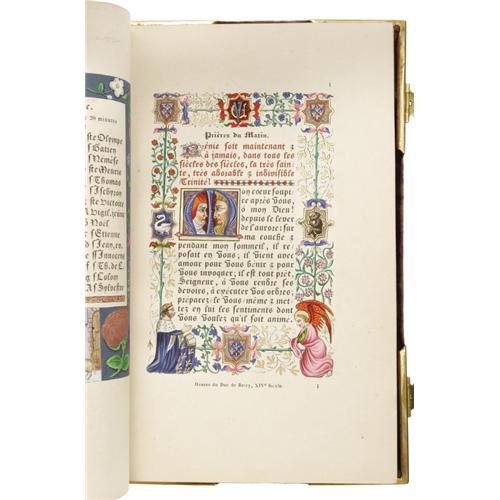 e.
: 20 minutes
ste Olympe
s Gatien
s Némèse
ste Meuris
s Thomas
s Ischyron
ste Victoire
Vigil. jeûne
Noël
s Etienne
s Jean, ev.
ss Innocens
s Th. de C.
s Colom
s Sylvestre
1
Prières du Matin.
Bénie soit maintenant &
à jamais, dans tous les
siècles des siècles, la très sain-
te, très adorable & indivisible
Trinité!
Mon coeur soupi-
re après Vous,
ô mon Dieu!
depuis le lever
de l'aurore: sur
ma couche &
pendant mon sommeil, il re-
posait en Vous; il vient avec
amour pour Vous bénir & pour
Vous invoquer; il est tout prêt,
Seigneur, à Vous rendre ses
devoirs, à exécuter Vos ordres;
préparez-le Vous-même & met-
tez en lui les sentiments dont
Vous voulez qu'il soit animé.
Heures du Duc de Berry, XIVe Siècle.
1